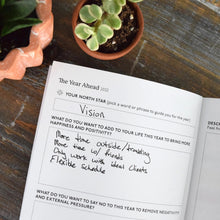 The Year Ahead
YOUR NORTH STAR (pick a word or phrase to guide you for the year)
Vision
WHAT DO YOU WANT TO ADD TO YOUR LIFE THIS YEAR TO BRING MORE
HAPPINESS AND POSITIVITY?
More time outside/traveling
More time w/ friends
Only work with ideal clients
Flexible schedule
WHAT DO YOU WANT TO SAY NO TO THIS YEAR TO REMOVE NEGATIVITY
AND EXTERNAL PRESSURE?